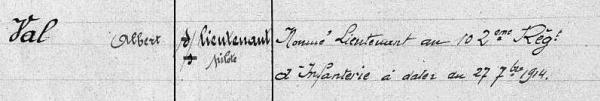 Val Albert s/lieutenant Nommé Lieutenant au 102ème Régt
pilote d'Infanterie à dater du 27 7bre 1914.